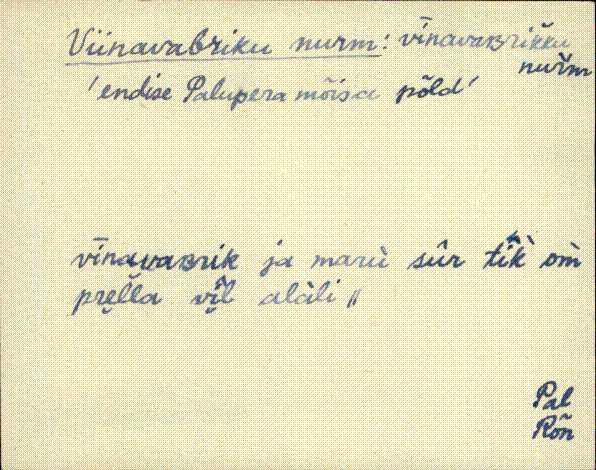 Viinavabriku nurm: vīnavaʙrikku
nuŕm
'endise Palupera mõisa põld'
vīnavaʙrik ja marù sûr tîk̀ om̀
prella vìl alàli //
Pal
Rõn